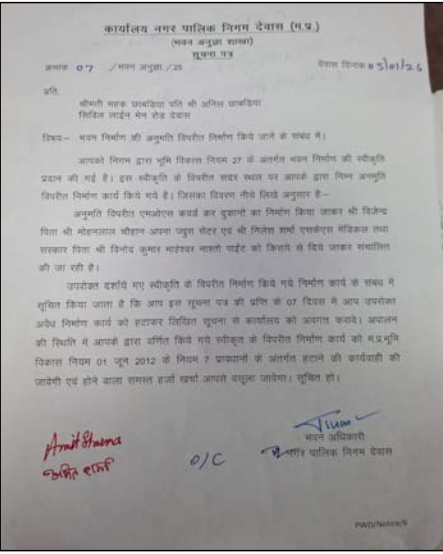 कार्यालय नगर पालिक निगम देवास (म.प्र.)
(भवन अनुज्ञा शाखा)
सूचना पत्र
क्रमांक 07 /भवन अनुज्ञा./25 देवास दिनांक 05/01/26
प्रति,
श्रीमती महक छाबडिया पति श्री अनिल छाबडिया
सिविल लाईन मेन रोड देवास
विषय:- भवन निर्माण की अनुमति विपरीत निर्माण किये जाने के संबंध में।
आपको निगम द्वारा भूमि विकास नियम 27 के अंतर्गत भवन निर्माण की स्वीकृति
प्रदान की गई है। इस स्वीकृति के विपरीत सदर स्थल पर आपके द्वारा निम्न अनुमति
विपरीत निर्माण कार्य किये गये है। जिसका विवरण नीचे लिखे अनुसार है:-
अनुमति विपरीत एमओएस कवर्ड कर दुकानो का निर्माण किया जाकर श्री विजेन्द्र
पिता श्री मोहनलाल चौहान अपना ज्युस सेंटर एवं श्री निलेश शर्मा एसकेएस मेडिकल तथा
सरकार पिता श्री विनोद कुमार माहेश्वर नाश्तो पाईंट को किराये से दिये जाकर संचालित
की जा रही है।
उपरोक्त दर्शाये गए स्वीकृति के विपरीत निर्माण किये गये निर्माण कार्य के संबंध में
सूचित किया जाता है कि आप इस सूचना पत्र की प्राप्ति के 07 दिवस में आप उपरोक्त
अवैध निर्माण कार्य को हटाकर लिखित सूचना से कार्यालय को अवगत करावे। अपालन
की स्थिति में आपके द्वारा वर्णित किये गये स्वीकृत के विपरीत निर्माण कार्य को म.प्र.भूमि
विकास नियम 01 जून 2012 के नियम 7 प्रावधानों के अंतर्गत हटाने की कार्यवाही की
जावेगी एवं होने वाला समस्त हर्जा खर्चा आपसे वसूला जावेगा। सूचित हो।
Amit Sharma
अमित शर्मा
O/C
भवन अधिकारी
नगर पालिक निगम देवास
PWD/Notice/9